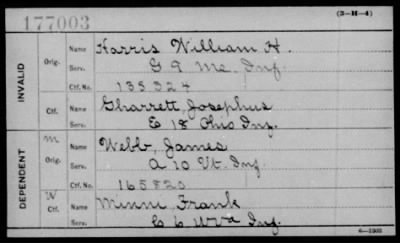 177003
(3-H-4)
INVALID
Orig. Name Harris William H.
Serv. G 9 Me. Inf.
Ctf. No. 135324
Ctf. Name Gharrett, Josephus
Serv. E 18 Ohio Inf.
DEPENDENT
M Orig. Name Webb, James
Serv. A 10 Vt. Inf.
Ctf. No. 165820
W Ctf. Name Minni Frank
Serv. C 6 W Va Inf.